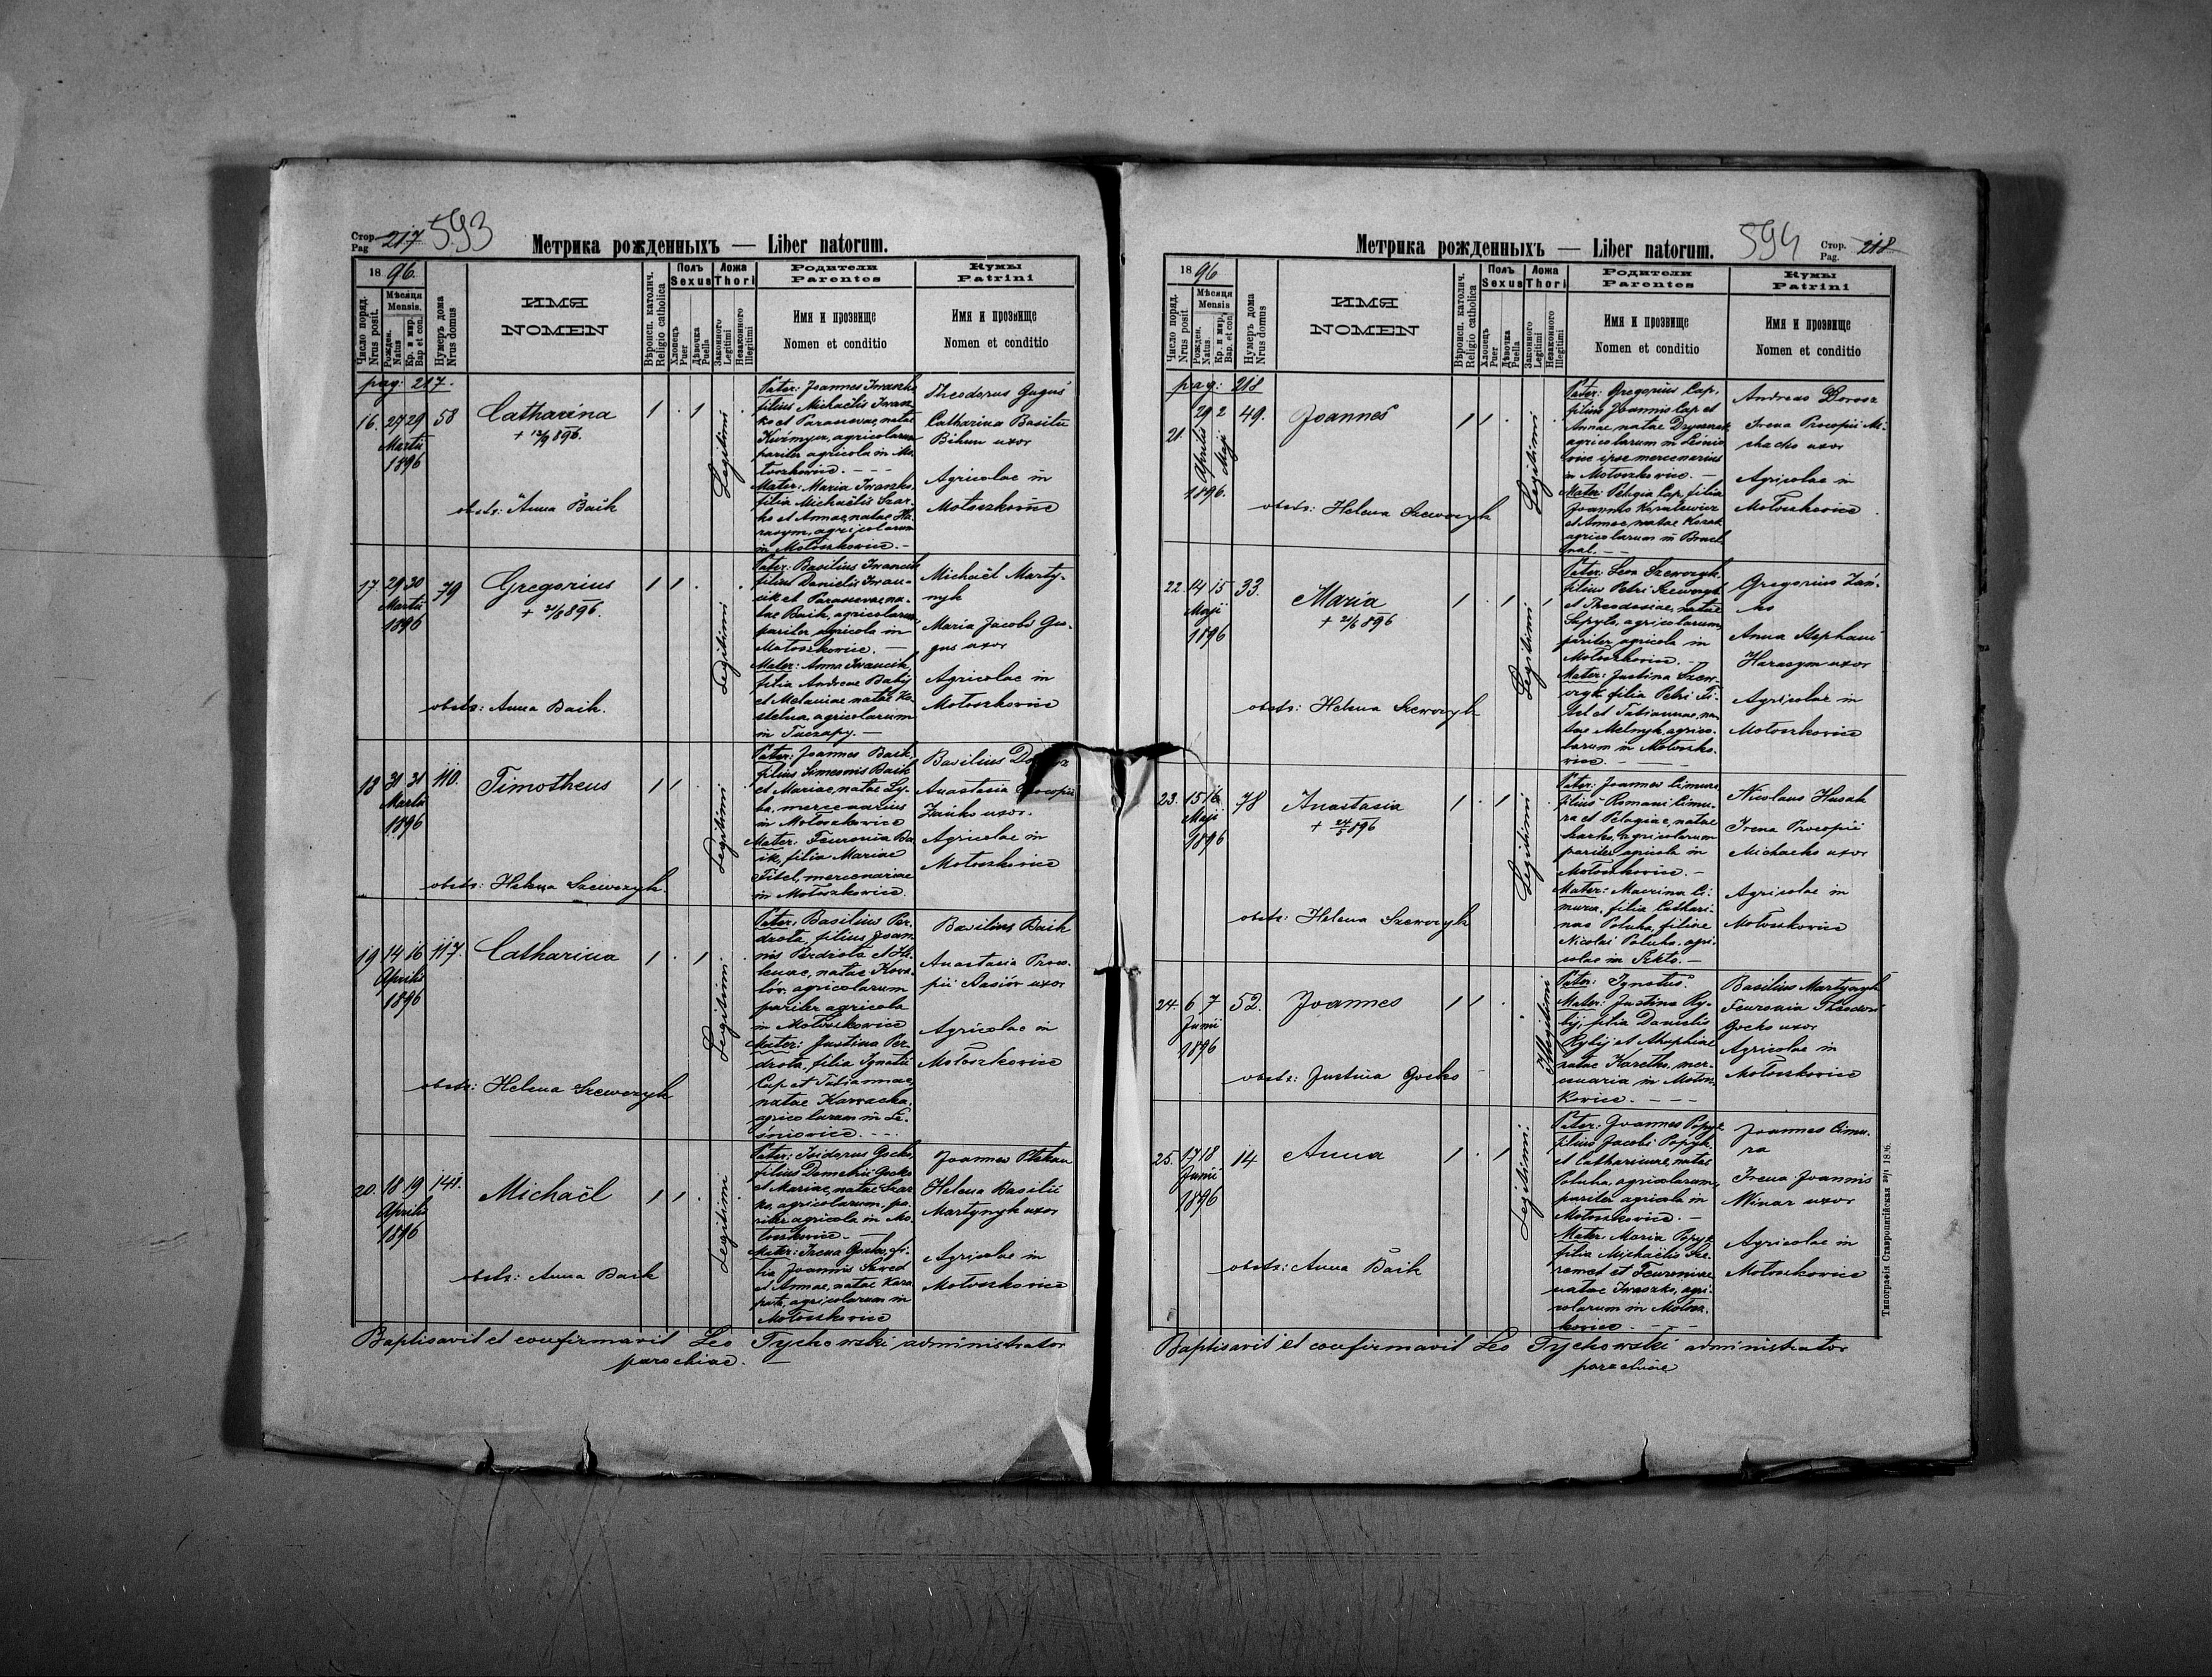 Стор. Pag 217 593
Метрика рожденныхъ — Liber natorum.
18 96.
Число поряд. Nrus posit.
Мѣсяця Mensis.
Рожден. Natus
Кр. и мир. Bap. et con.
Нумеръ дома Nrus domus
ИМЯ
NOMEN
Вѣроисп. католич. Religio catholica
Полъ Sexus
Хлопець Puer
Дѣвочка Puella
Ложа Thori
Законного Legitimi
Незаконного Illegitimi
Родители
Parentes
Имя и прозвище
Nomen et conditio
Кумы
Patrini
Имя и прозвище
Nomen et conditio
pag: 217.
16. 27 29 58
Martii
1896
Catharina
+ 12/9 896.
obstr: Anna Baik
1 . 1 .
Legitimi
Pater: Joannes Iwaszko
filius Michaëlis Iwasz
ko et Parascevae, natae
agricolarum
pariter agricola in Mo
łoszkowice. - - -
Mater: Maria Iwaszko,
filia Michaëlis Szar
ko et Annae, natae Ha
rasym, agricolarum
in Mołoszkowice. -
Theodorus Guguś
Catharina Basilii
Bihun uxor
Agricolae in
Mołoszkowice
17. 29 30 79
Martii
1896
Gregorius
+ 21/6 896.
obstr: Anna Baik.
1 1 . .
Legitimi
Pater: Basilius Iwancik
filius Danielis Iwan-
cik et Parascevae, na-
tae Baik, agricolarum,
pariter agricola in
Mołoszkowice. -
Mater: Anna Iwancik,
filia Andreae Babij
et Melaniae natae Ko
stelna, agricolarum
in Tuczapy. -
Michaël Marty-
nyk
Maria Jacobi Gu-
gus uxor
Agricolae in
Mołoszkowice
18 30 31 110.
Martii
1896
Timotheus
obstr: Helena Szewczyk.
1 1 .
Legitimi
Pater: Joannes Baik,
filius Simeonis Baik
et Mariae, natae Ly-
ba, mercenarius
in Mołoszkowice
Mater: Feuronia Ba
ik, filia Mariae
Fitel, mercenariae
in Mołoszkowice.
Basilius
Anastasia Procopii
Zańko uxor.
Agricolae in
Mołoszkowice
19 14 16 117.
Aprilis
1896
Catharina
obstr: Helena Szewczyk
1 . 1 .
Legitimi
Pater: Basilius Per-
drota, filius Joan-
nis Perdrota et He-
lenae, natae Kowa-
lów, agricolarum
pariter agricola
in Mołoszkowice
Mater: Justina Per-
drota, filia Ignatii
Cap et Tatiannae,
natae Karacka,
agricolarum in Le-
śniowice. - - -
Basilius Baik
Anastasia Proco-
pii uxor
Agricolae in
Mołoszkowice
20. 18 19 148.
Aprilis
1896
Michaël
obstr: Anna Baik
1 1 . .
Legitimi
Pater: Isidorus Gocko,
filius Demetrii Gocko
et Mariae, natae Szar
ko, agricolarum, pa-
riter agricola in Mo-
łoszkowice. -
Mater: Irena Gocko, fi-
lia Joannis Szwed
et Annae, natae Kara
agricolarum in
Mołoszkowice
Joannes Ptekan
Helena Basilii
Martynyk uxor
Agricolae in
Mołoszkowice
Baptisavit et confirmavit Leo Tychowski administrator
parochiae. -
Метрика рожденныхъ — Liber natorum.
594 Стор. Pag. 218
18 96
Число поряд. Nrus posit.
Мѣсяця Mensis
Рожден. Natus.
Кр. и мир. Bap. et con.
Нумеръ дома Nrus domus
ИМЯ
NOMEN
Вѣроисп. католич. Religio catholica
Полъ Sexus
Хлопець Puer
Дѣвочка Puella
Ложа Thori
Законного Legitimi
Незаконного Illegitimi
Родители
Parentes
Имя и прозвище
Nomen et conditio
Кумы
Patrini
Имя и прозвище
Nomen et conditio
pag: 218
21. 29 2 49.
Aprilis Maji
1896.
Joannes
obstr: Helena Szewczyk
1 1 . .
Legitimi
Pater: Gregorius Cap,
filius Joannis Cap et
Annae, natae
agricolarum in Leśnio
wice ipse mercenarius
in Mołoszkowice. -
Mater: Pelagia Cap, filia
Joannis Koralewicz
et Annae, natae Kozak
agricolarum in Bruck
- -
Andreas Dorosz
Irena Procopii Mi-
chacko uxor
Agricolae in
Mołoszkowice
22. 14 15 33.
Maji
1896
Maria
+ 21/6 896
obstr: Helena Szewczyk
1 . 1 .
Legitimi
Pater: Leon Szewczyk
filius Petri Szewczyk
et Theodosiae, natae
Sapyla, agricolarum,
pariter agricola in
Mołoszkowice. -
Mater: Justina Szew-
czyk filia Petri Fi-
tel et Tatiannae, na-
tae Melnyk, agrico-
larum in Mołoszko-
wice. -
Gregorius Zań-
ko
Anna Stephani
Harasym uxor
Agricolae in
Mołoszkowice
23. 15 16 78
Maji
1896
Anastasia
+ 24/5 896
obstr: Helena Szewczyk
1 . 1 .
Legitimi
Pater: Joannes Cimura
filius Romani Cimu-
ra et Pelagiae, natae
Szarko, agricolarum
pariter agricola in
Mołoszkowice. -
Mater: Macrina Ci-
mura, filia Cathari-
nae Poluha, filiae
Nicolai Poluha, agri-
colae in Szkło. -
Nicolaus Husak
Irena Procopii
Michacko uxor
Agricolae in
Mołoszkowice
24. 6 7 52.
Junii
1896
Joannes
obstr: Justina Gocko
1 1 .
Illegitimi
Pater: Ignotus.
Mater: Justina Ry-
bij, filia Danielis
Rybij et Ahaphiae
natae mer-
cenaria in Mołosz-
kowice. - - -
Basilius Martynyk
Feuronia Theodori
Gocko uxor
Agricolae in
Mołoszkowice
25. 17 18 14
Junii
1896
Anna
obstr: Anna Baik
1 . 1
Legitimi.
Pater: Joannes Popyk
filius Jacobi Popyk
et Catharinae, natae
Poluha, agricolarum,
pariter agricola in
Mołoszkowice. -
Mater: Maria Popyk
filia Michaëlis Sze-
remet et Feuroniae
natae Iwaszko, agri-
colarum in Mołosz-
kowice. - - -
Joannes Cimu-
ra
Irena Joannis
Winar uxor
Agricolae in
Mołoszkowice
Baptisavit et confirmavit Leo Tychowski administrator
parochiae
Типографія Ставропигійская